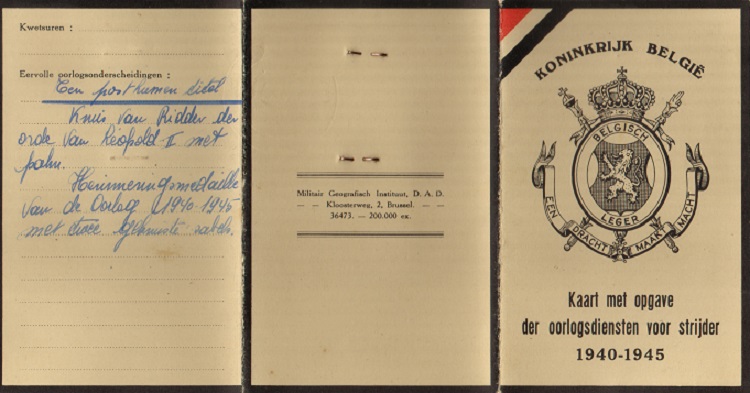 Kwetsuren :
Eervolle oorlogsonderscheidingen :
Een posthumen titel
Kruis van Ridder der
orde van Leopold II met
palm.
Herinneringsmedaille
van de Oorlog 1940-1945
met twee gekruiste sabels.
Militair Geografisch Instituut, D. A. D.
— — Kloosterweg, 2, Brussel. — —
36473. — 200.000 ex.
KONINKRIJK BELGIË
BELGISCH
LEGER
EEN DRACHT MAAKT MACHT
Kaart met opgave
der oorlogsdiensten voor strijder
1940-1945